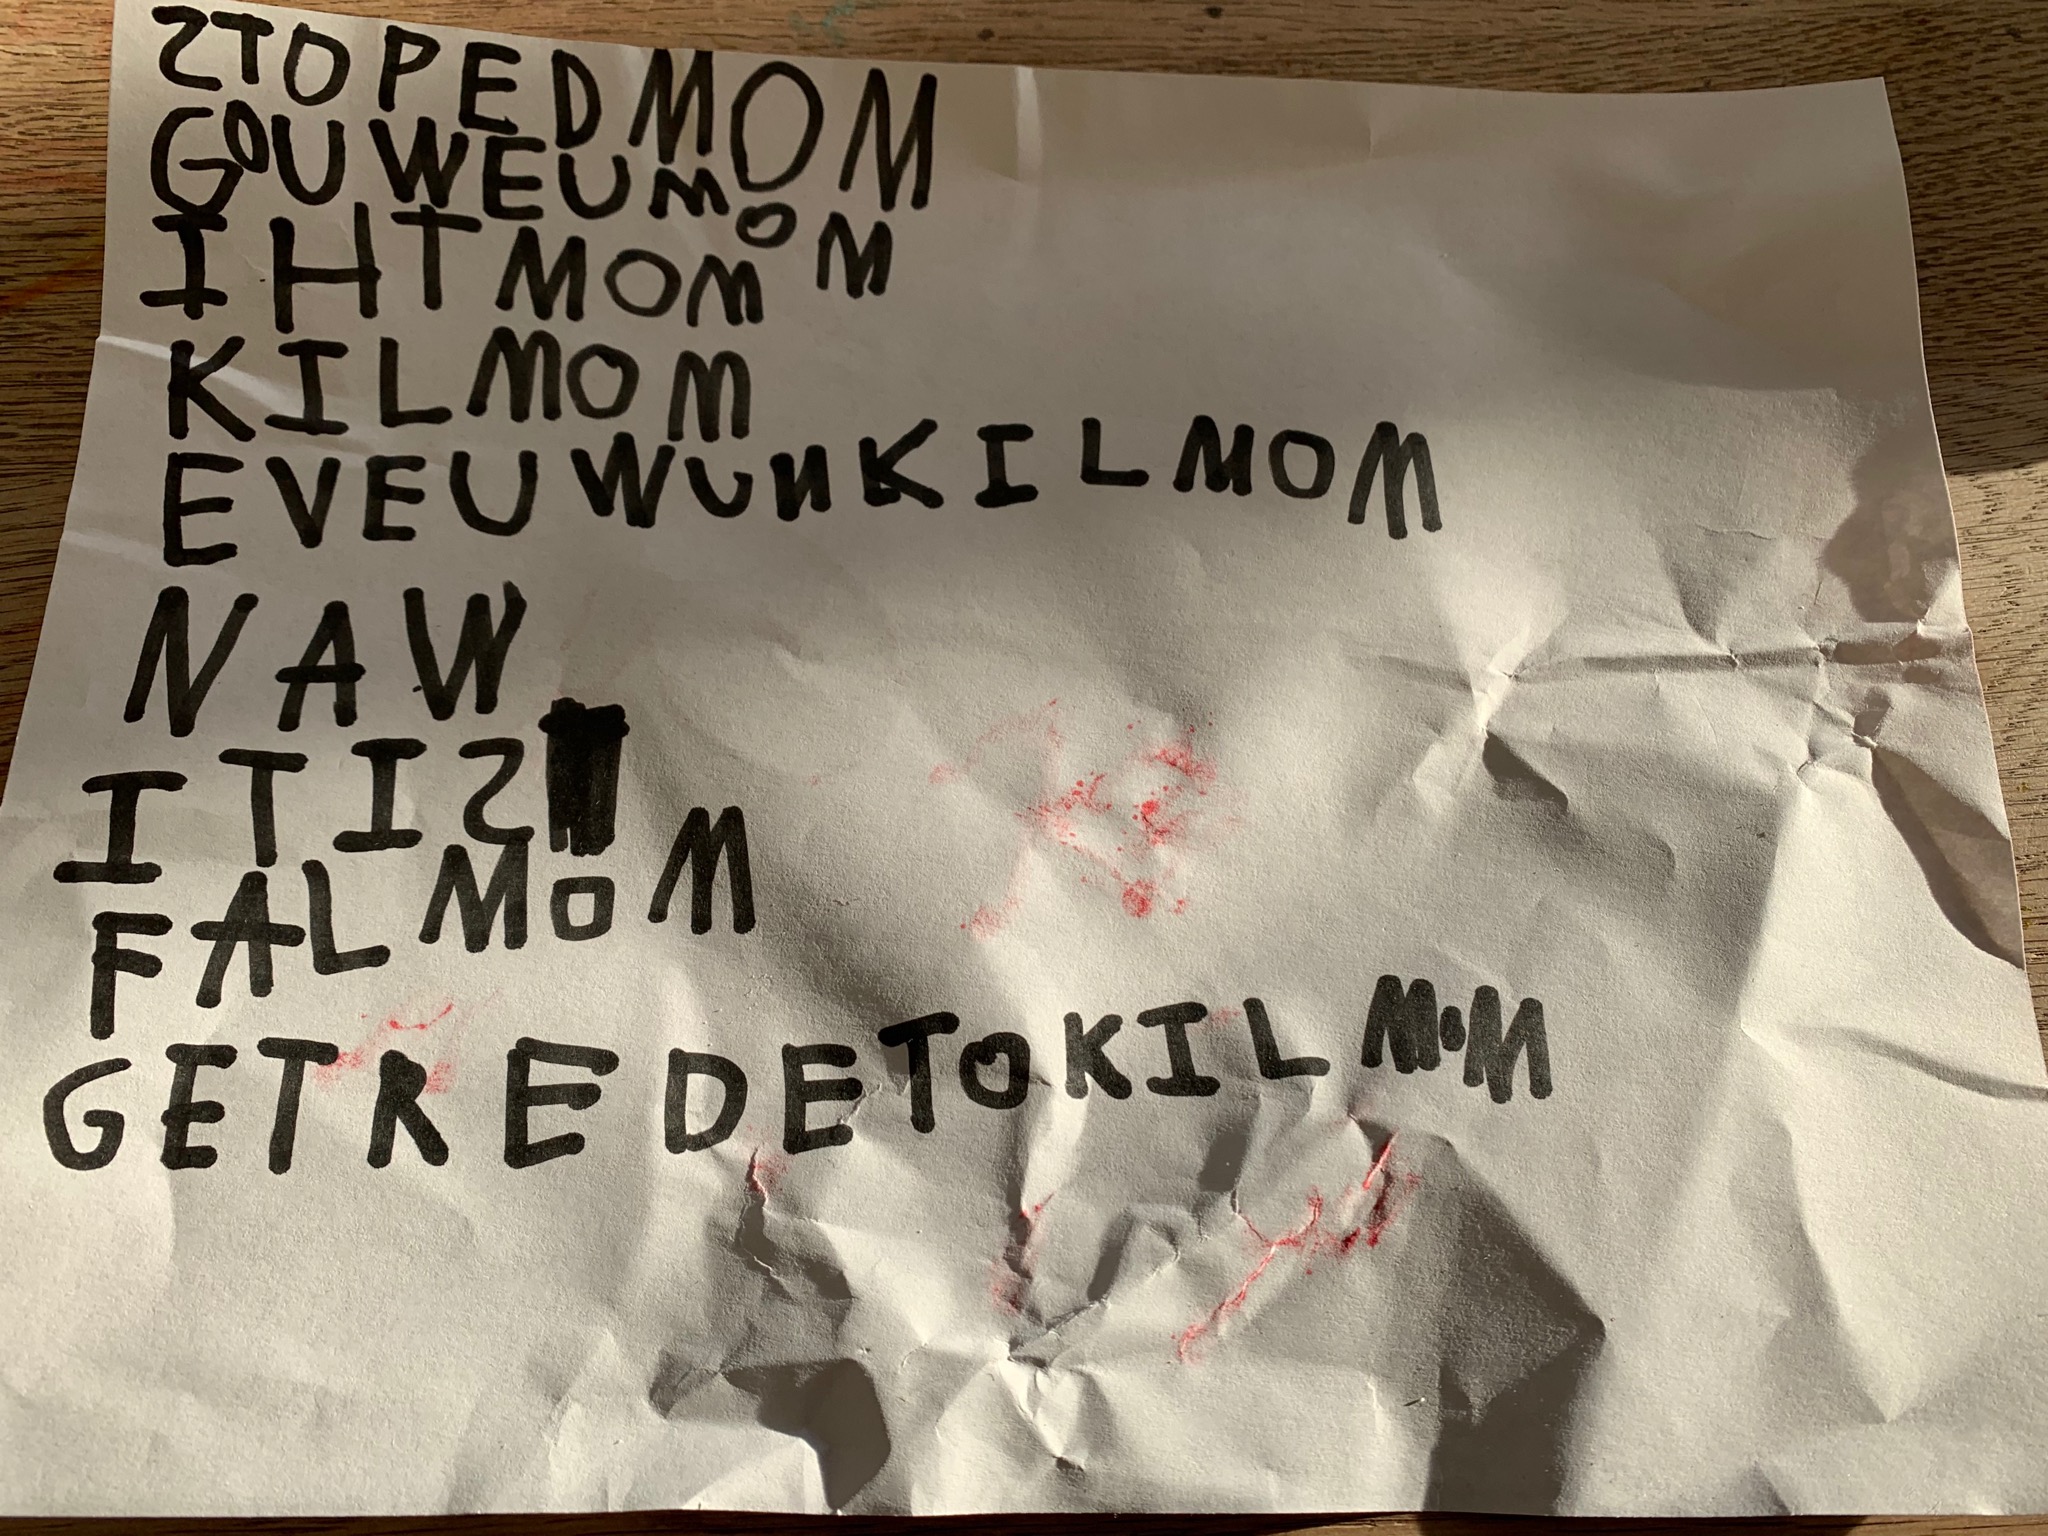 STOPEDMOM
GOUWEUMOM
IHTMOM
KILMOM
EVEUWUNKILMOM
NAW
ITIS
FALMOM
GETREDETOKILMOM